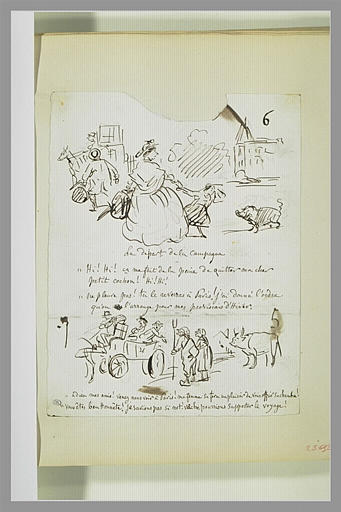 6
Le départ de la Campagne
" Hi! Hi! ça me fait de la peine de quitter mon cher
petit cochon! Hi! Hi!
" Ne pleure pas! tu le reverras à Paris! j'ai donné l'ordre
qu'on l'arrange pour nos provisions d'hiver.
mes amis! venez nous voir à Paris! ma femme se fera un plaisir de vous offrir
Vous êtes ben honnête! Je savions pas si not' vache pourrions supporter le voyage!